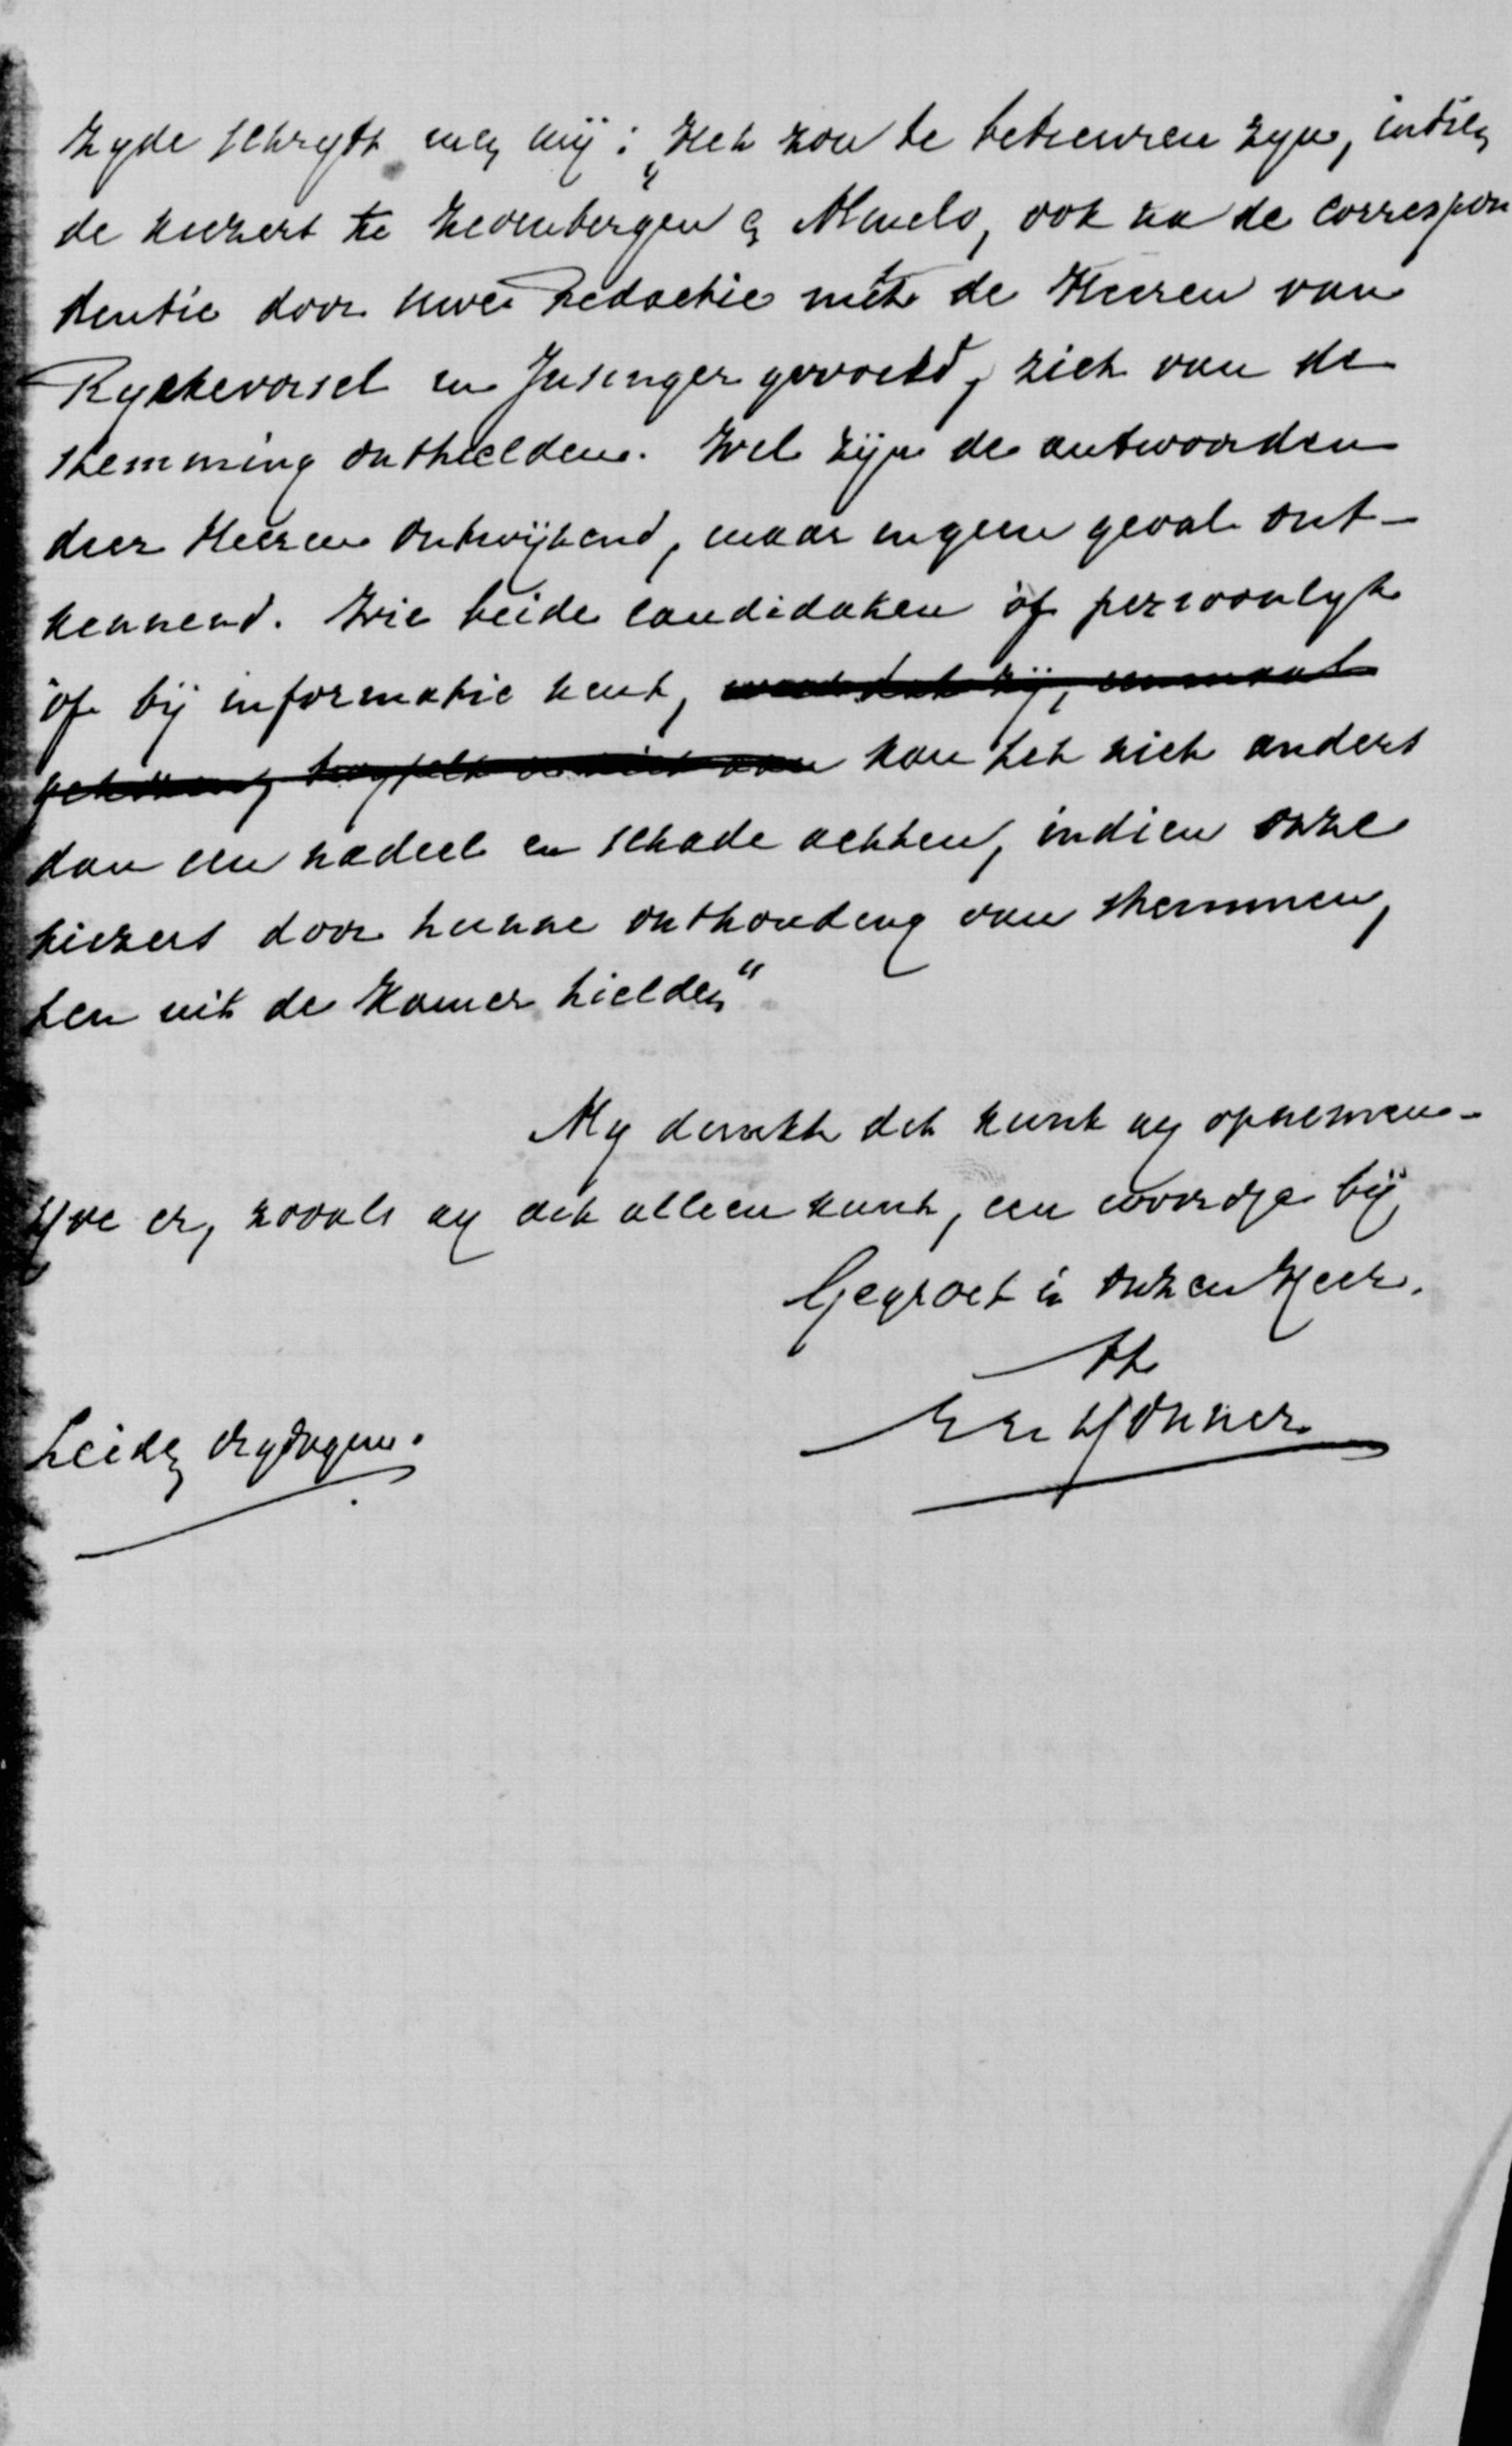 zyde schryft men mij: „Het zou te betreuren zyn, indien
de kiezers te Zevenbergen en Almelo, ook na de correspon
dentie door uwe redactie met de Heeren van
Ryckevorsel en Insinger gevoerd, zich van de
stemming onthielden. Wel zijn de antwoorden
dier Heeren ontwijkend, maar in geen geval ont-
kennend. Wie beide candidaten òf persoonlyk
òf bij informatie kent,
kan het niet anders
dan een nadeel en schade achten, indien onze
kiezers door hunne onthouding van stemmen,
hen uit de Kamer hielden"
My dunkt dit kunt gy opnemen.
er, zooals gy dit alleen kunt, een woordje bij,
Gegroet in onzen Heer.
tt
Donner
Leiden